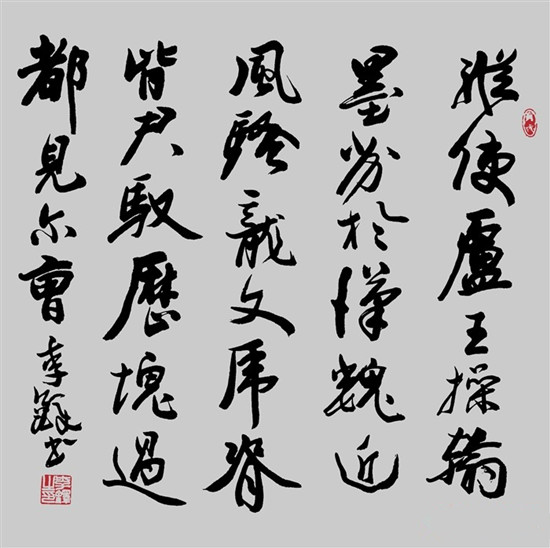 縱使盧王操翰
墨劣於漢魏近
風騷龍文虎脊
皆君馭歷塊過
都見尔曹 李鐸书